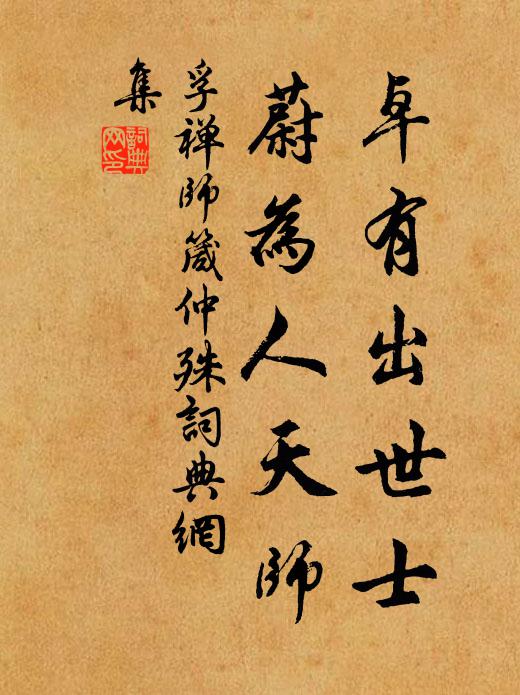 卓有出世士
蔚為人天師
孚禅師箴仲殊詞典網
集
詞典
网印